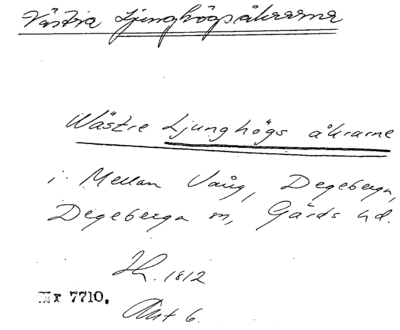 Västra Ljunghögsåkrarna
Wästre Ljunghögs åkrarne
i Mellan Vång, Degeberga,
Degeberga sn, Gärds hd.
Sk. 1812
Nr 7710.
Akt 6.